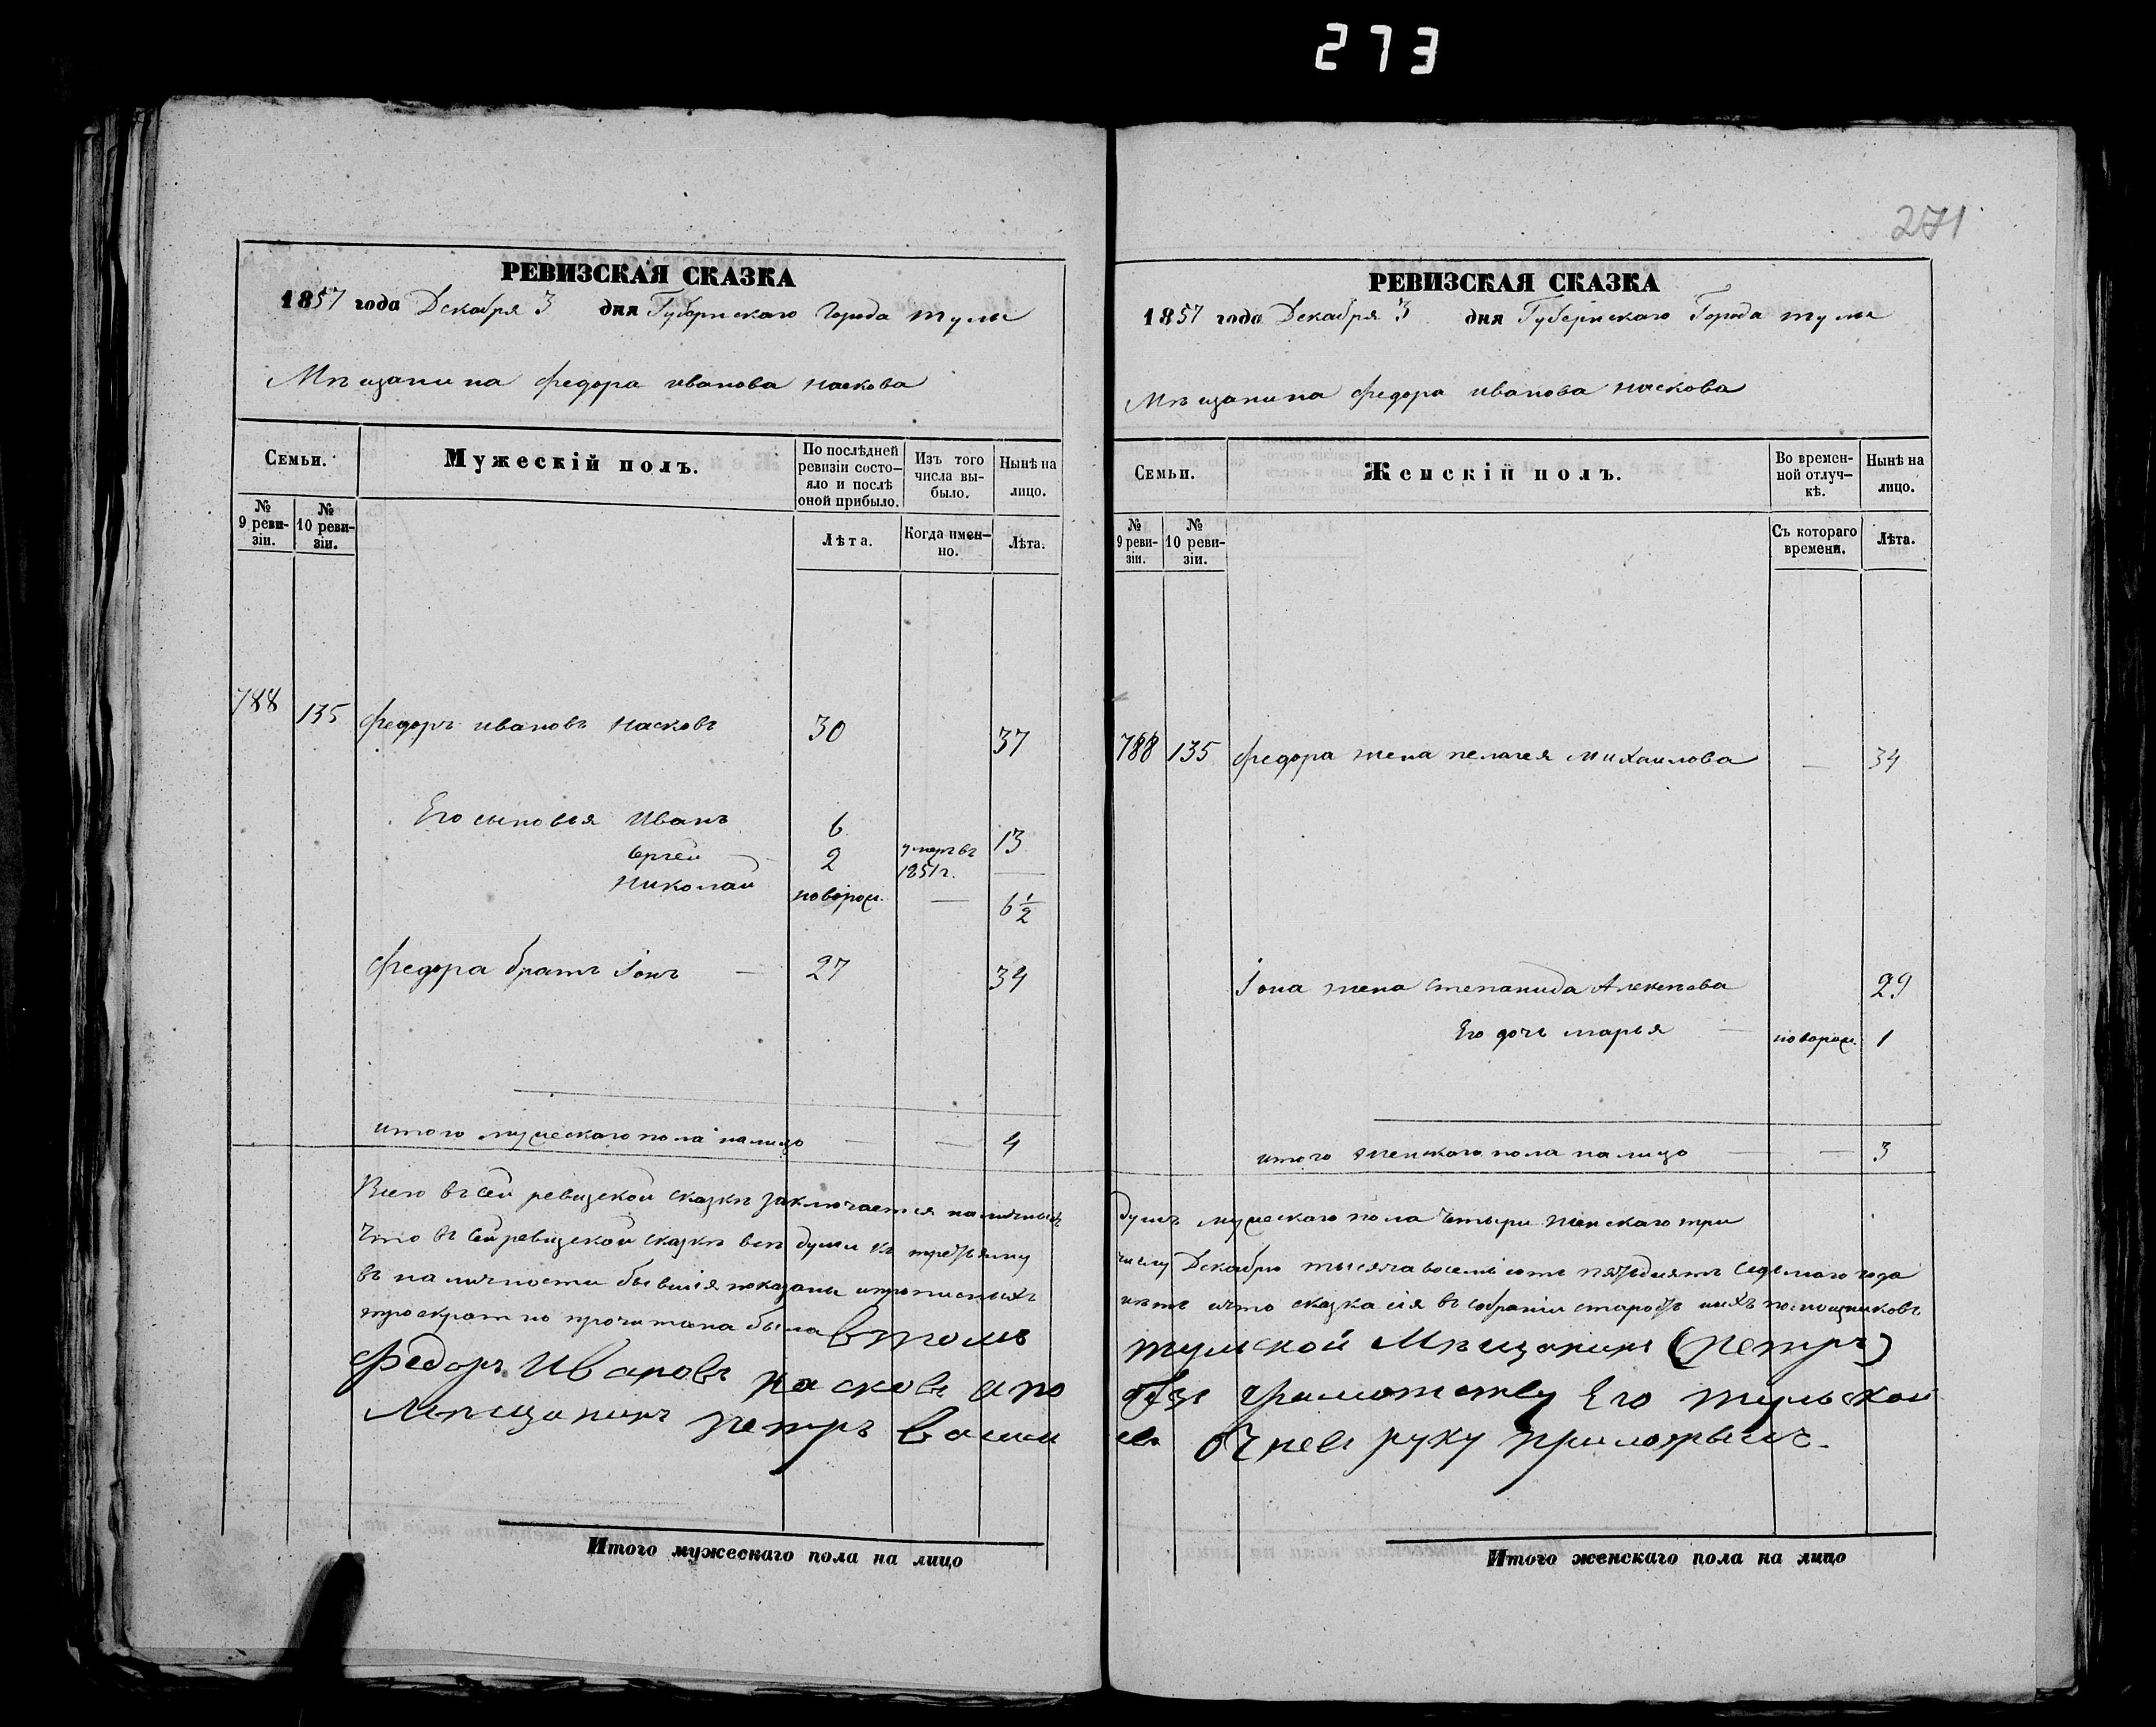 273
271
РЕВИЗСКАЯ СКАЗКА
1857 года Декабря 3 дня Губернскаго Города тулы
Мѣщанина федора иванова наскова
Семьи.
Мужескій полъ.
По послѣдней ревизіи состояло и послѣ оной прибыло.
Изъ того числа выбыло.
Нынѣ на лицо.
№ 9 ревизіи.
№ 10 ревизіи.
Лѣта.
Когда именно.
Лѣта.
788 135 федоръ ивановъ насковъ 30 37
Его сыновья Иванъ 6 13
Сергей 2 умеръ въ 1851 г. —
Николай новорож. — 6½
федора братъ Іонъ — 27 34
итого мужескаго пола налицо — — 4
Всего въ сей ревизской сказкѣ заключается наличныхъ
Что въ сей ревизской сказкѣ всѣ души къ третьему
въ наличности бывшія показаны и прописныхъ
троекратно прочитана была Втомъ
Федоръ Ивановъ насковъ а по
Мѣщанинъ петръ
Итого мужескаго пола на лицо
РЕВИЗСКАЯ СКАЗКА
1857 года Декабря 3 дня Губернскаго Города тулы
Мѣщанина федора иванова наскова
Семьи.
Женскій полъ.
Во временной отлучкѣ.
Нынѣ на лицо.
№ 9 ревизіи.
№ 10 ревизіи.
Съ котораго времени.
Лѣта.
788 135 федора жена пелагея михаилова — 34
Іона жена степанида Алексѣева 29
Его дочь марья — новорож. 1
итого женскаго пола налицо — — 3
душъ мужескаго пола четыри женскаго три
числу Декабря тысяча восемь сотъ пятьдесятъ седьмого года
нѣтъ и что сказка сія въ собраніи старостъ ихъ помощниковъ
тульской Мѣщанинъ (петръ)
Его тульской
руку приложилъ.
Итого женскаго пола на лицо